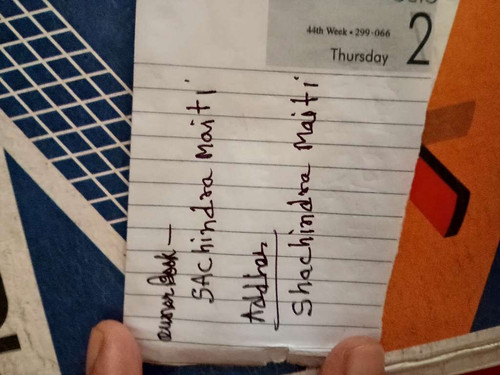 44th Week • 299-066
Thursday
2
owner Book —
SAchindra Maiti
Address
Shachindra Maiti